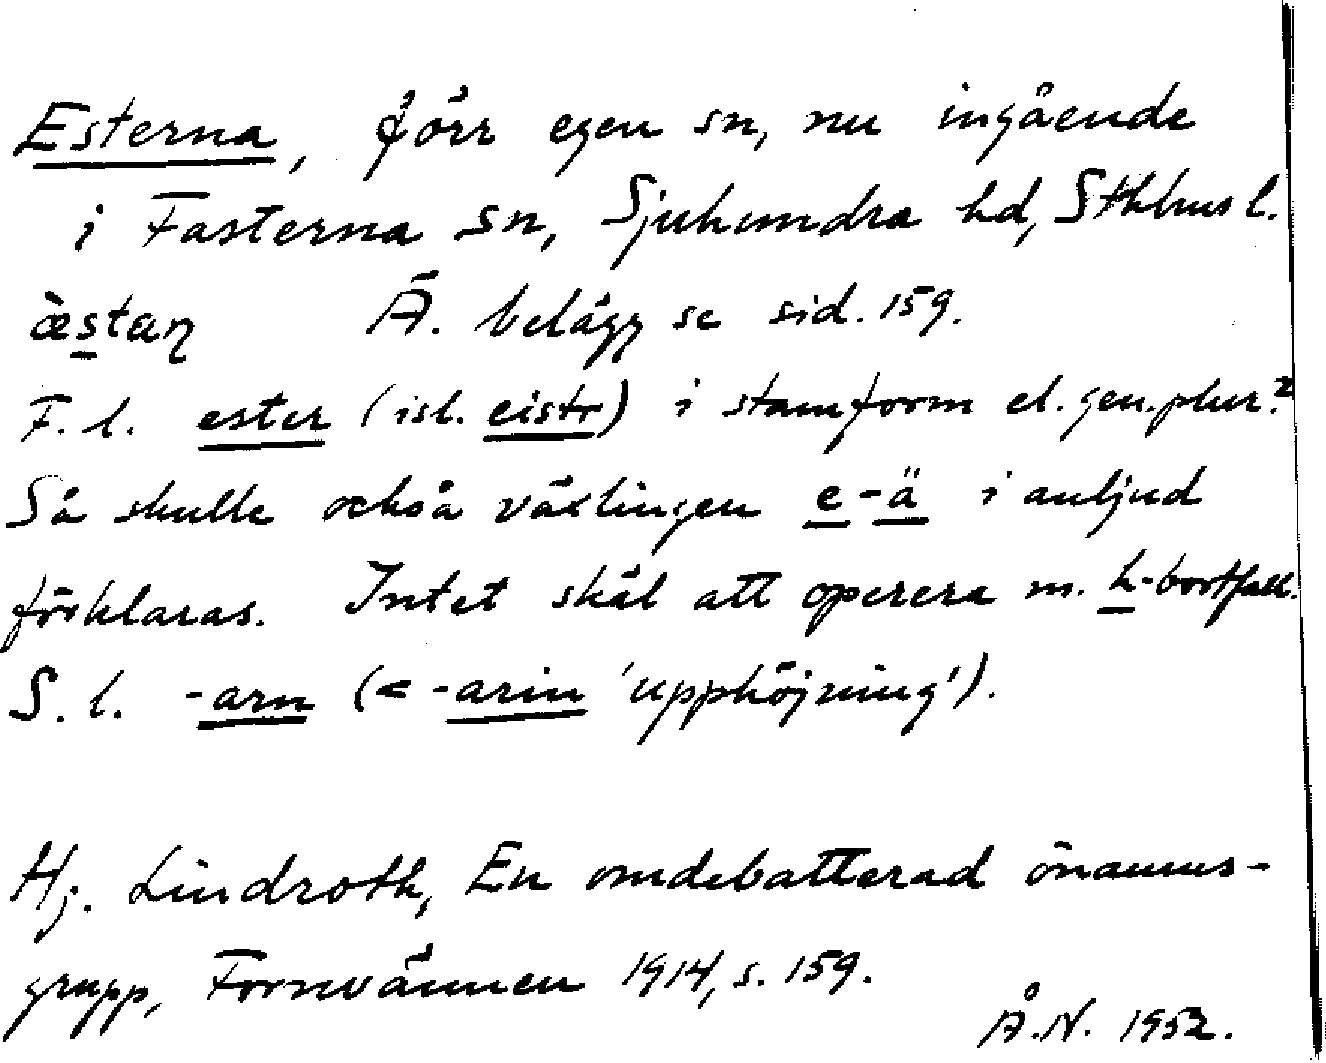 Esterna, förr egen sn, nu ingående
i Fasterna sn, Sjuhundra hd, Sthlms l.
æ̀staɳ Ä. belägg se sid. 159.
F. l. ester (isl. eistr) i stamform el. gen. plur.?
Så skulle också växlingen e-ä i anljud
förklaras. Intet skäl att operera m. h-bortfall.
S. l. -arn (< -arin 'upphöjning').
Hj. Lindroth, En omdebatterad önamns-
grupp, Fornvännen 1914, s. 159.
Å.N. 1952.